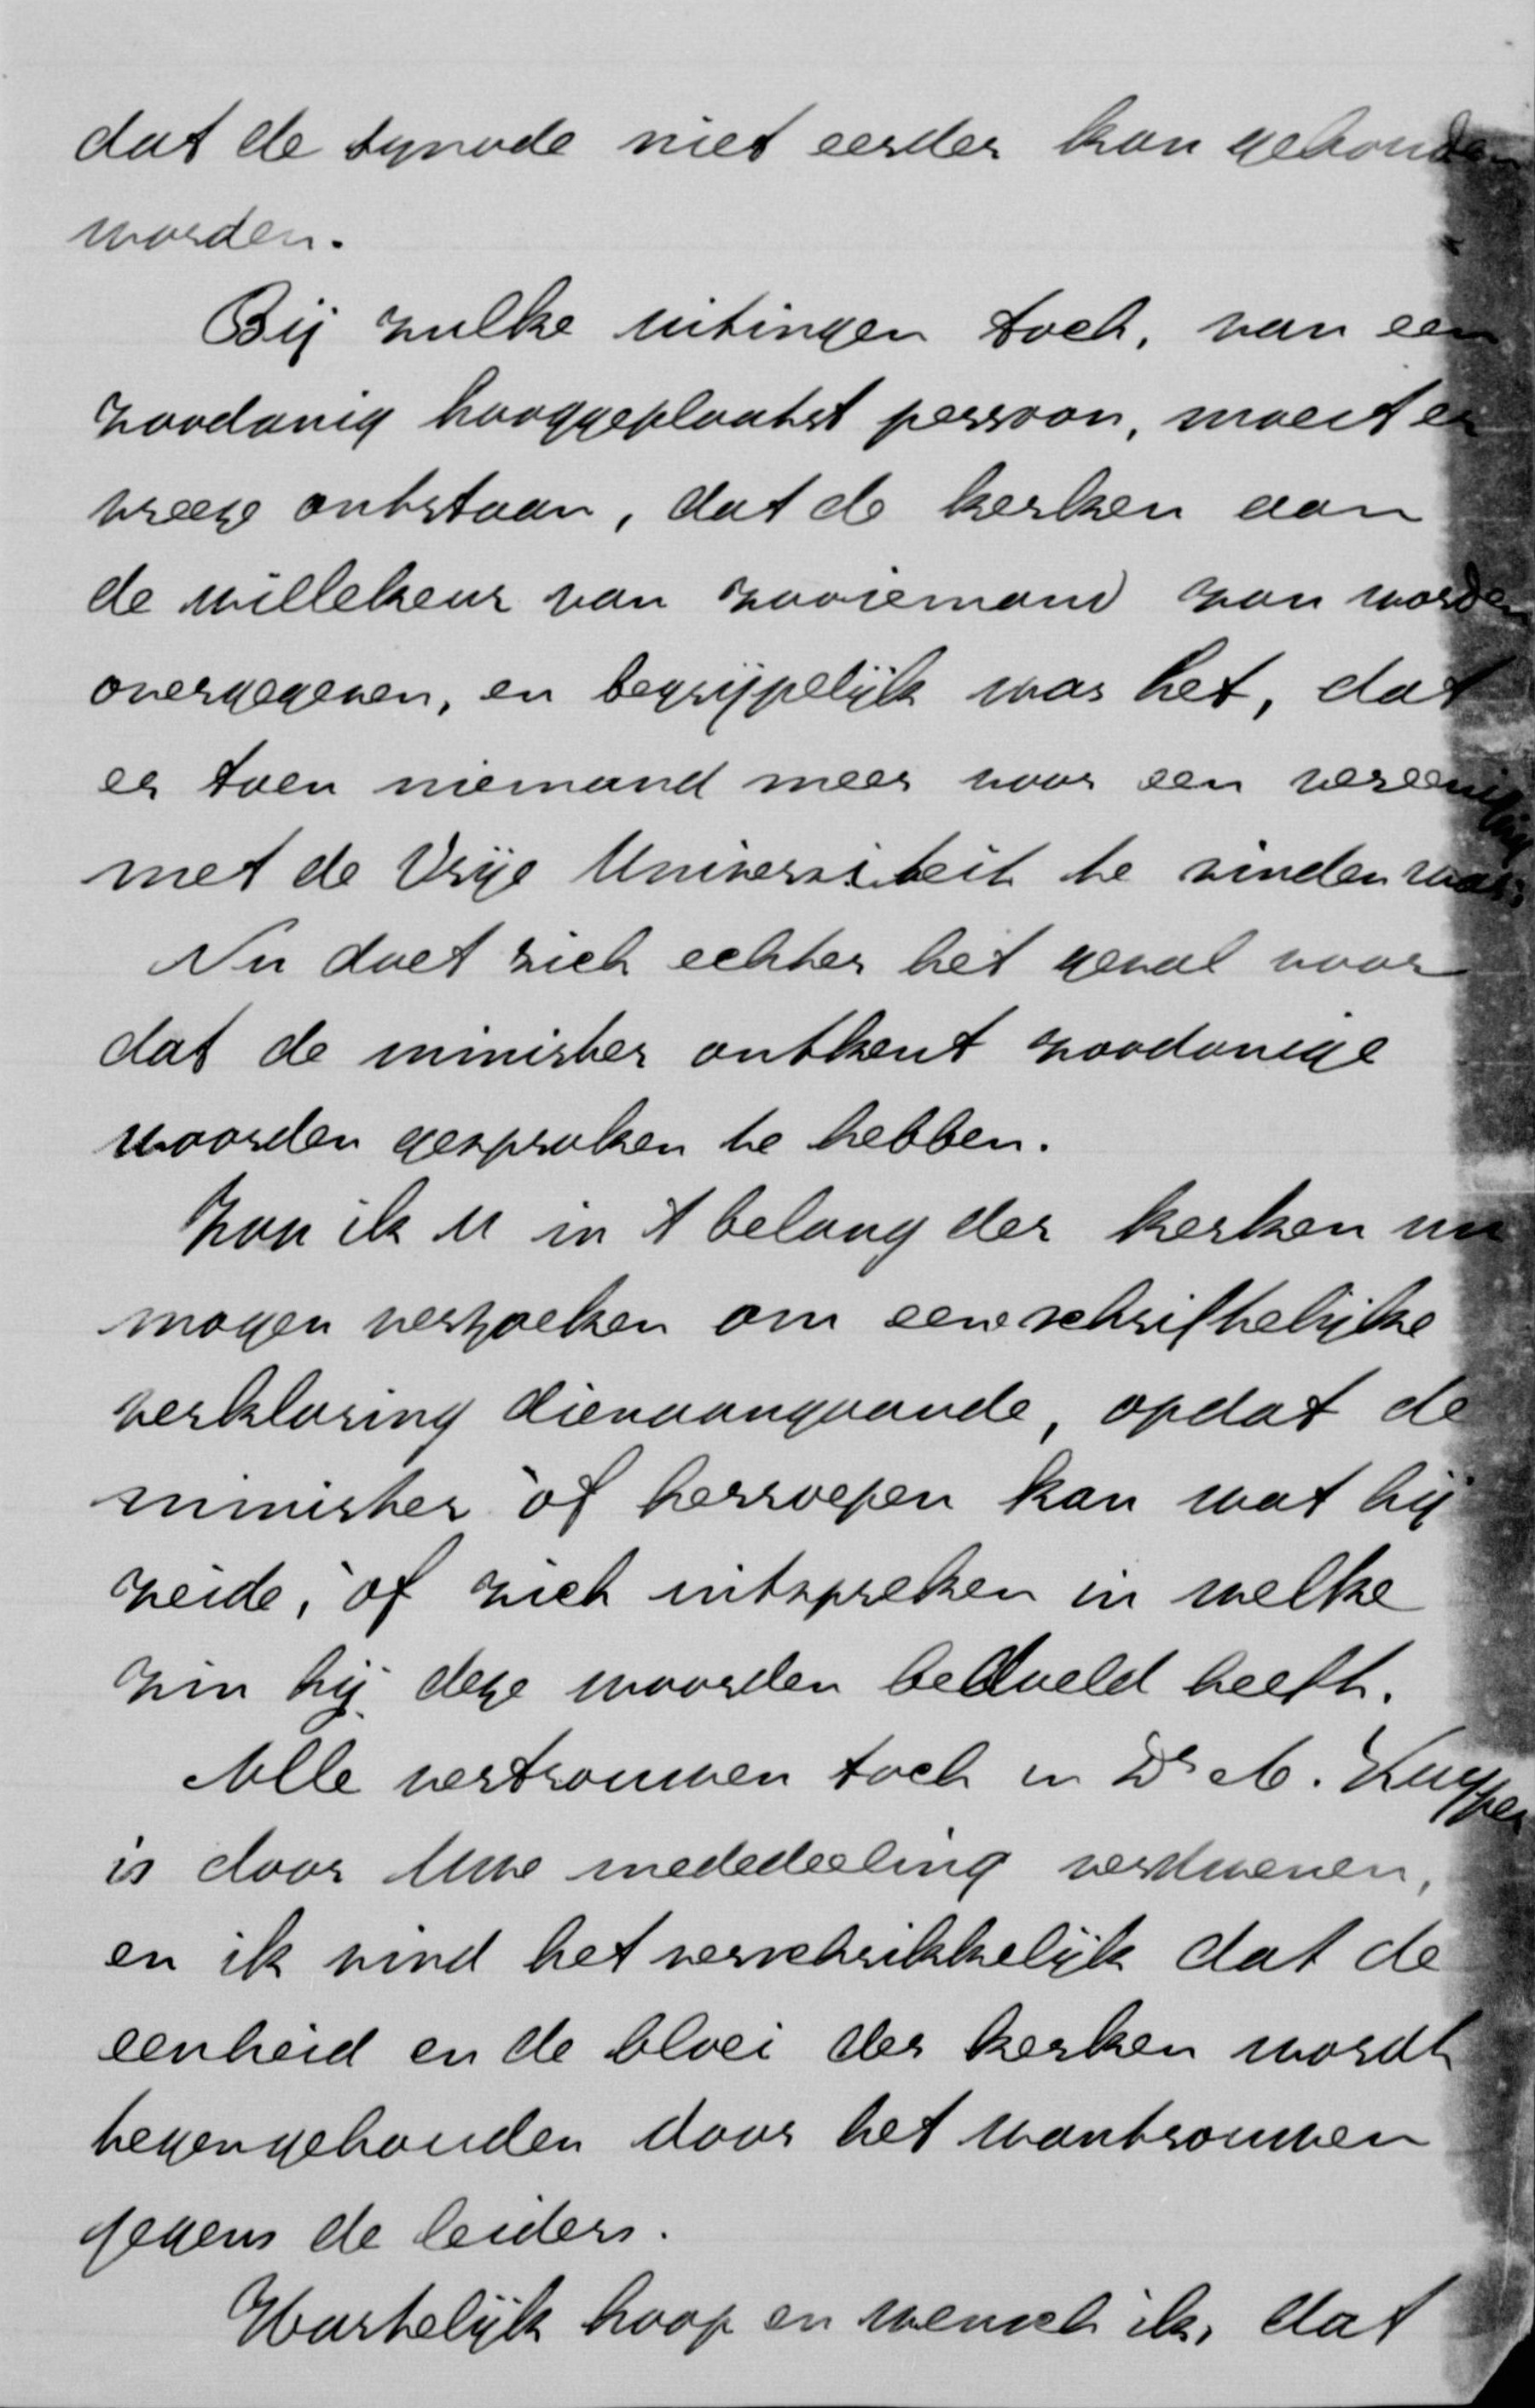 dat de synode niet eerder kon gehouden
worden.
Bij zulke uitingen toch, van een
zoodanig hooggeplaatst persoon, moest er
vreeze ontstaan, dat de kerken aan
de willekeur van zooiemand zou worden
overgegeven, en begrijpelijk was het, dat
er toen niemand meer voor een vereeniging
met de Vrije Universiteit te vinden was.
Nu doet zich echter het geval voor
dat de minister ontkent zoodanige
woorden gesproken te hebben.
Zou ik U in 't belang der kerken nu
mogen verzoeken om eene schriftelijke
verklaring dienaangaande, opdat de
minister òf herroepen kan wat hij
zeide, òf zich uitspreken in welke
zin hij deze woorden bedoeld heeft.
Alle vertrouwen toch in Dr A. Kuyper
is door Uwe mededeeling verdwenen,
en ik vind het verschrikkelijk dat de
eenheid en de bloei der kerken wordt
tegengehouden door het wantrouwen
jegens de leiders.
Hartelijk hoop en wensch ik, dat